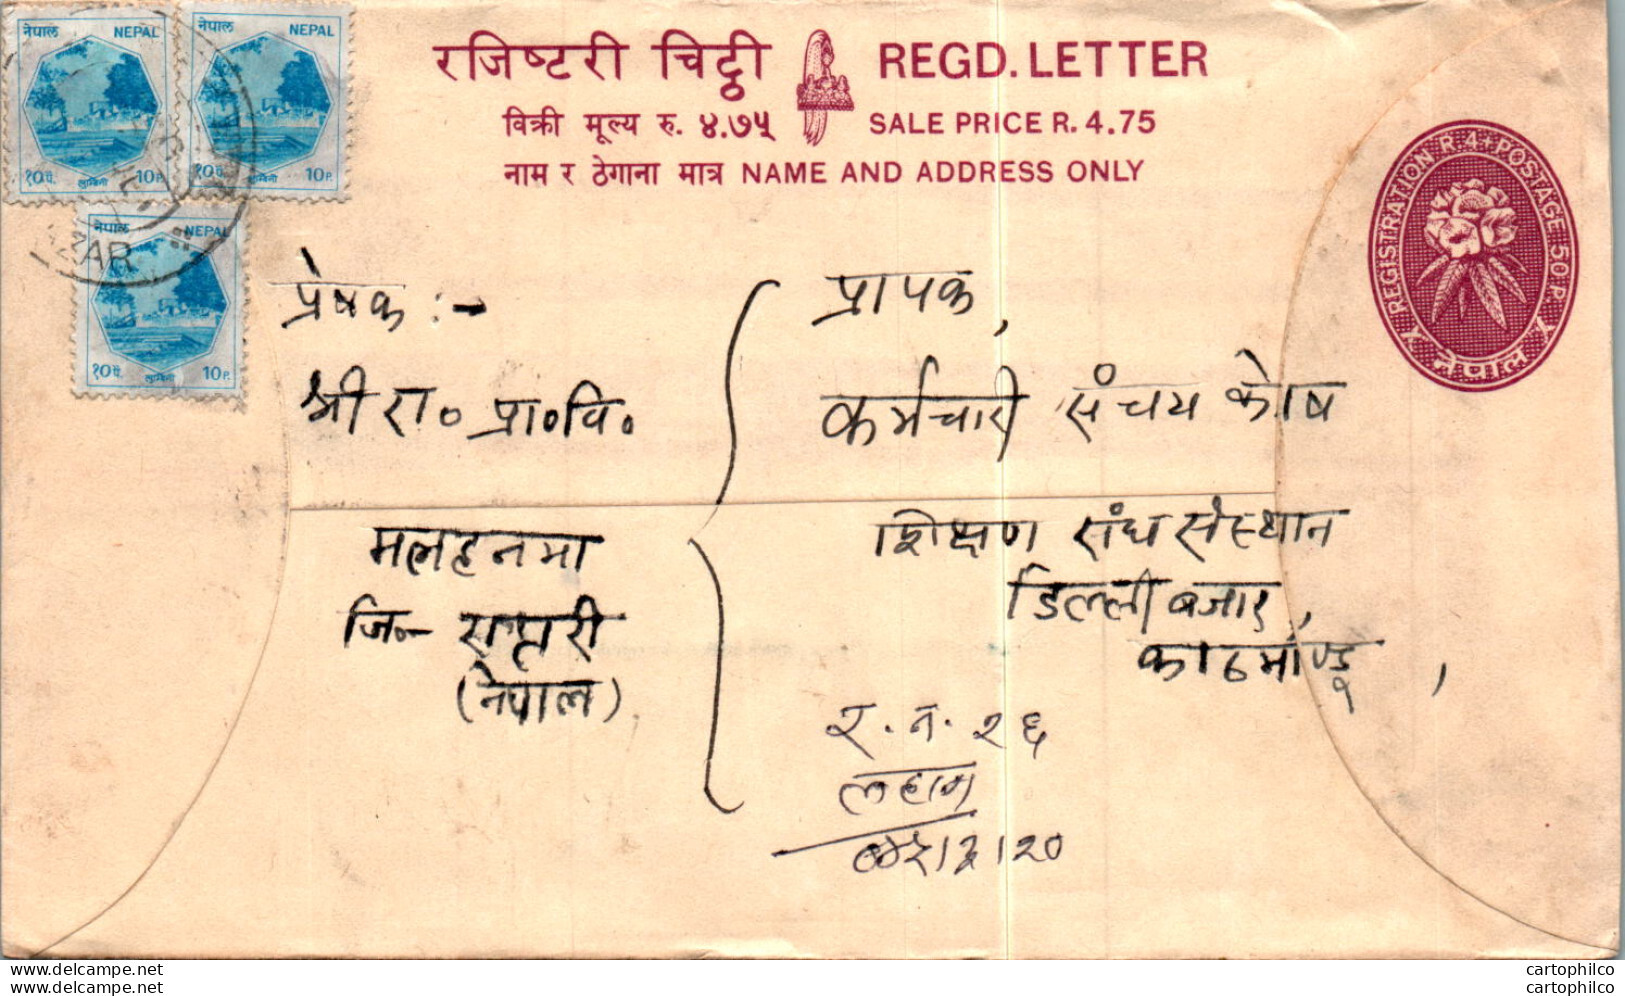 नेपाल NEPAL
१०पै. लुम्बिनी 10P.
नेपाल NEPAL
१०पै. लुम्बिनी 10P.
नेपाल NEPAL
१०पै. लुम्बिनी 10P.
ZAR
रजिष्टरी चिट्ठी REGD. LETTER
विक्री मूल्य रु. ४.७५ SALE PRICE R. 4.75
नाम र ठेगाना मात्र NAME AND ADDRESS ONLY
REGISTRATION R. 4 + POSTAGE 50 P. X नेपाल X
प्रेषक :-
श्री रा० प्रा० वि०
मलहनमा
जि०- सप्तरी
(नेपाल)
प्रापक,
कर्मचारी संचय कोष
शिक्षण संघ संस्थान
डिल्ली बजार,
काठमाण्डू,
र. न. २६
लहान
www.delcampe.net
www.delcampe.net
cartophilco
cartophilco